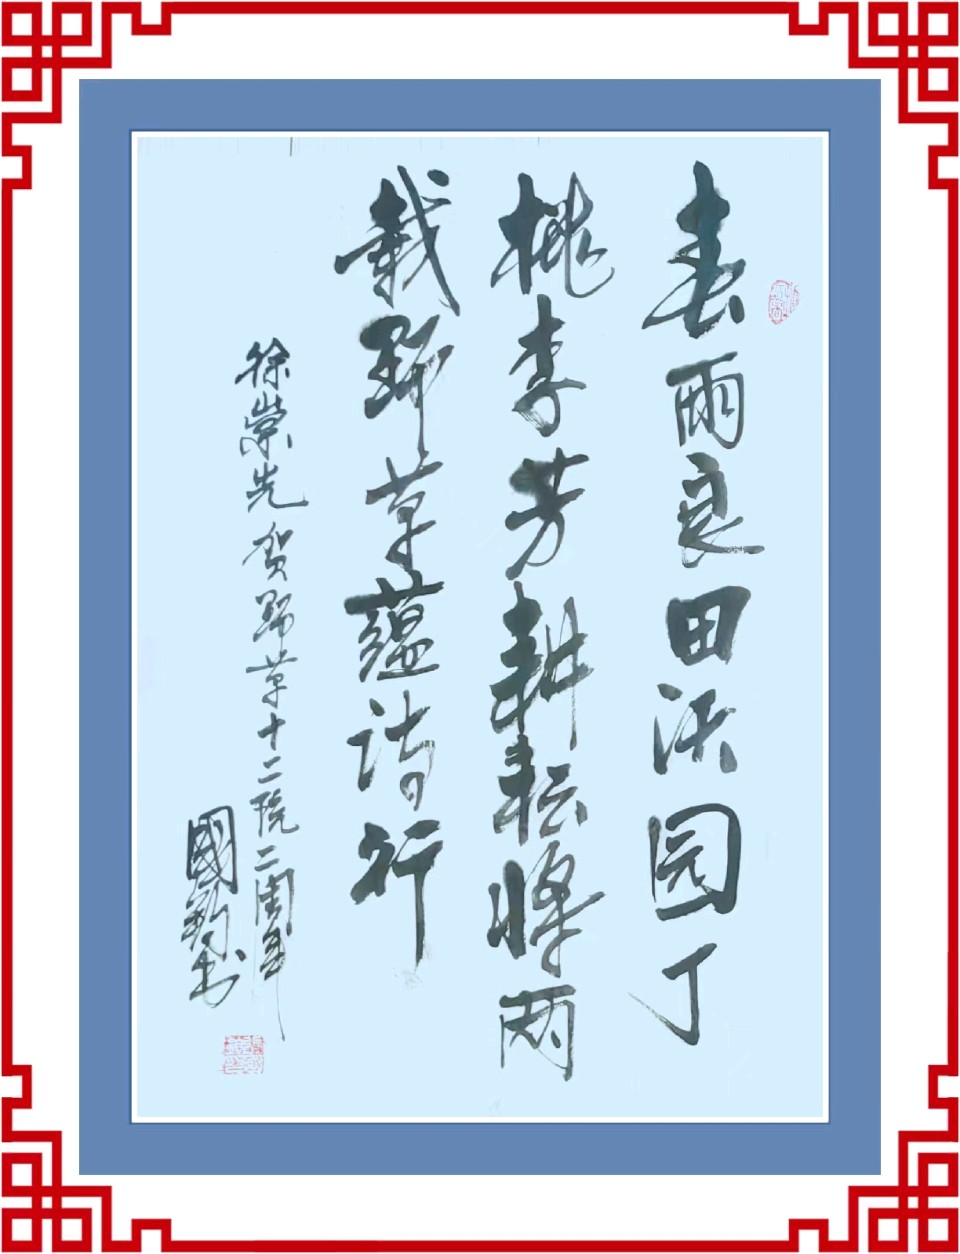 春雨良田沃园丁
桃李芳耕耘将两
载野草蕴诗行
徐崇先贺野草十二院二周年
國书